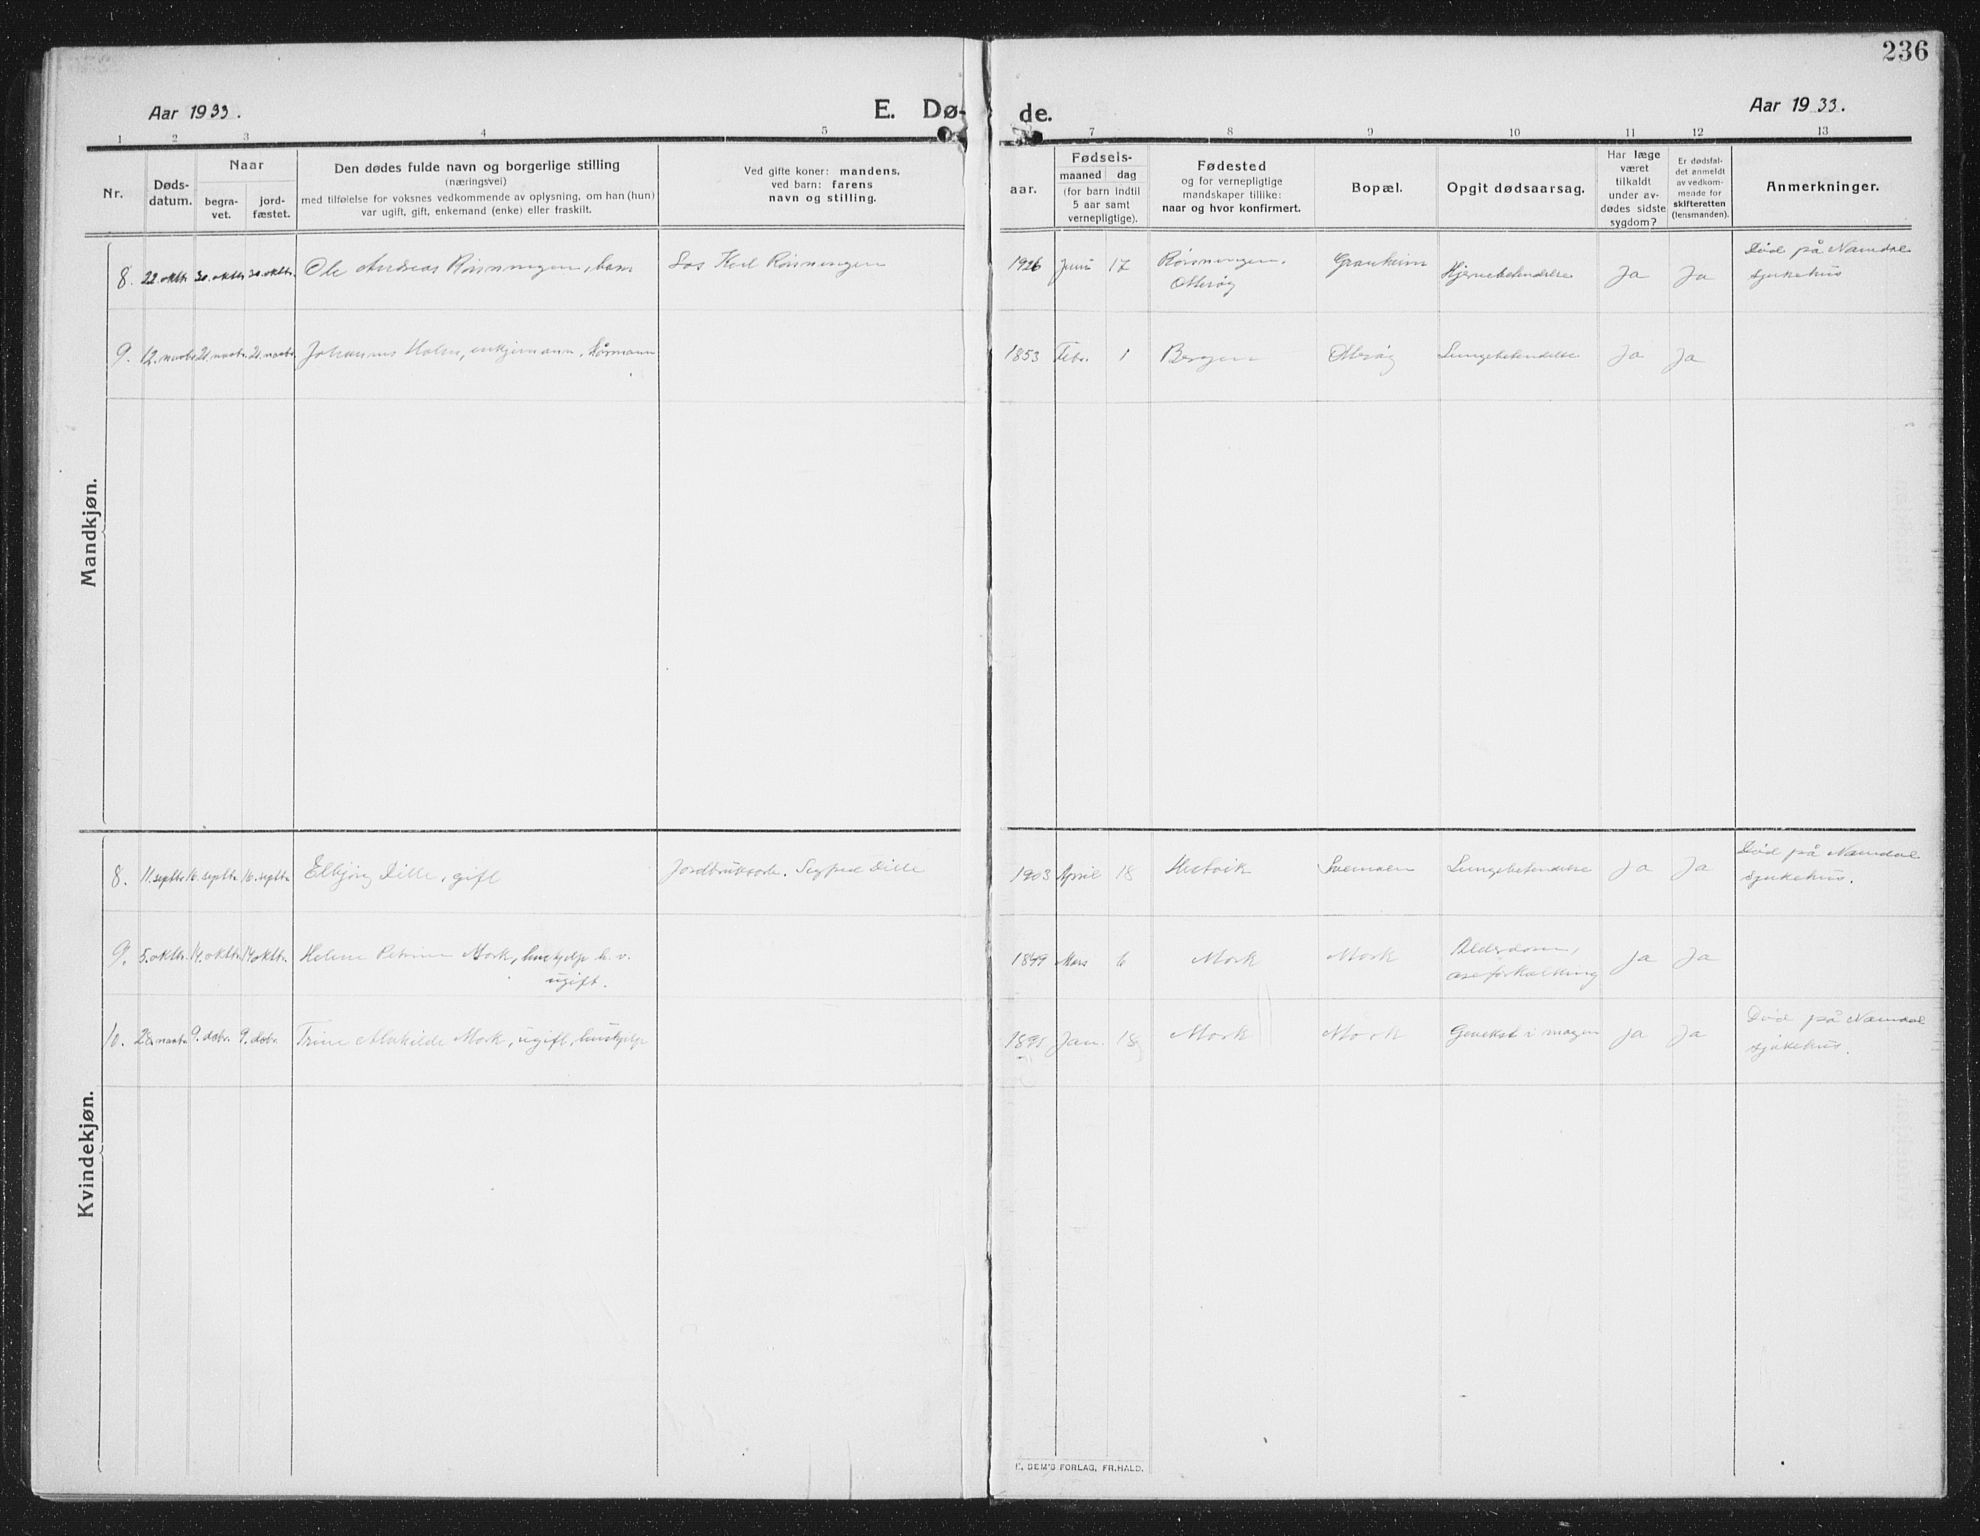 236
Aar 1933.
E. Dø-
de.
Aar 1933.
1 2 3 4 5 7 8 9 10 11 12 13
Nr.
Døds-
datum.
Naar
begra-
vet.
jord-
fæstet.
Den dødes fulde navn og borgerlige stilling
(næringsvei)
med tilføielse for voksnes vedkommende av oplysning, om han (hun)
var ugift, gift, enkemand (enke) eller fraskilt.
Ved gifte koner: mandens,
ved barn: farens
navn og stilling.
aar.
Fødsels-
maaned dag
(for barn indtil
5 aar samt
vernepligtige).
Fødested
og for vernepligtige
mandskaper tillike:
naar og hvor konfirmert.
Bopæl.
Opgit dødsaarsag.
Har læge
været
tilkaldt
under av-
dødes sidste
sygdom?
Er dødsfal-
det anmeldt
av vedkom-
mende for
skifteretten
(lensmanden).
Anmerkninger.
Mandkjøn.
8. 22. oktbr. 30. oktbr. 30. oktbr. Ole Andreas Rønningen, barn Karl Rønningen 1926 Juni 17 Rønningen, Otterøy Hjernebetendelse Ja Ja Død på Namdal
sjukehus
9. 12. novbr. 21. novbr. 21. novbr. Johannes Holm, enkjemann, 1853 Febr. 1 Bergen Otterøy Lungebetendelse Ja Ja
Kvindekjøn.
8. 11. septbr. 16. septbr. 16. septbr. Elbjørg Dille, gift Dille 1903 April 18 Hestvik Lungebetendelse Ja Ja Død på Namdal
sjukehus.
9. 5. oktbr. 14. oktbr. 14 oktbr. Helene Petrine Mork, hushjelp h. v.
ugift. 1849 Mars 6 Mork Mork Alderdom, Ja Ja
10. 28. novbr. 9. desbr. 9. desbr. Trine Mathilde Mork, ugift, hushjelp Jan. 18 Mork Mork i magen Ja Ja Død på Namdal
sjukehus.
FORLAG, FR.HALD.